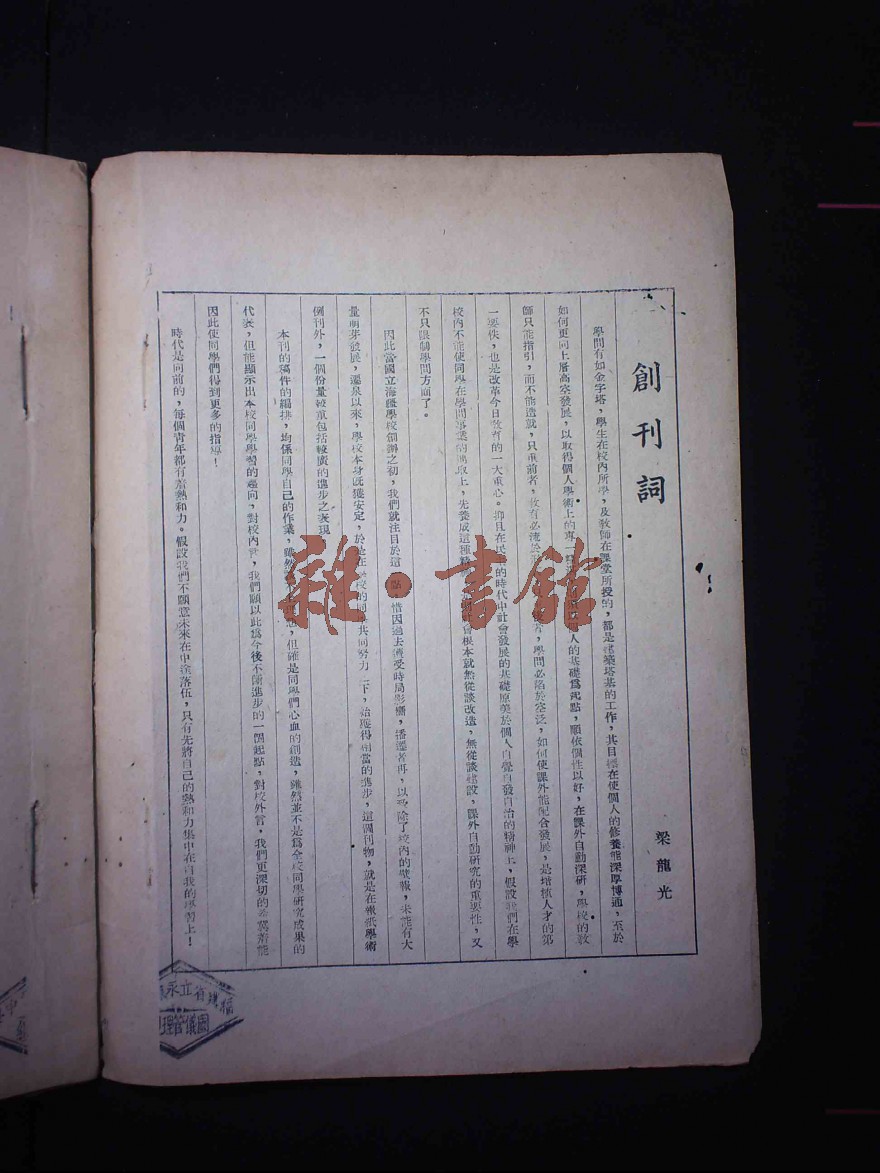 創刊詞
梁龍光
學問有如金字塔，學生在校內所學，及敎師在課堂所授的，都是建築塔基的工作，其目標在使個人的修養能深厚博通，至於
如何更向上層高空發展，以取得個人學術上的專一 個人的基礎爲起點，順依個性以好，在課外自動深研，學校的敎
師只能指引，而不能遷就，只重前者，敎育必淹於 ，學問必陷於空泛，如何使課外能配合發展，是培植人才的第
一要佚，也是改革今日敎育的一大重心。抑且在民主的時代中社會發展的基礎原奠於個人自覺自發自治的精神上，假設我們在學
校內不能使同學在學問事業的進取上，先養成這種精 社會根本就無從談改造，無從談建設，課外自動研究的重要性，又
不只限制學問方面了。
因此當國立海疆學校創辦之初，我們就注目於這一點 惜因過去遭受時局影響，播遷者再，以致除了校內的壁報，未能有大
量萌芽發展，遷泉以來，學校本身旣獲安定，於是在 校的同學共同努力之下，始獲得相當的進步，這個刊物，就是在報紙學術
例刊外，一個份量較重包括較廣的進步之表現
本刊的稿件的編排，均係同學自己的作業，雖然 理想，但確是同學們心血的創造，雖然並不是爲全校同學研究成果的
代表，但能顯示出本校同學學習的趨向，對校內言，我們願以此爲今後不斷進步的一個起點，對校外言，我們更深切的希冀着能
因此使同學們得到更多的指導！
時代是向前的，每個青年都有着熱和力。假設我們不願意未來在中途落伍，只有先將自己的熱和力集中在自我的學習上！
雜·書館
福建省立永
圖儀管理